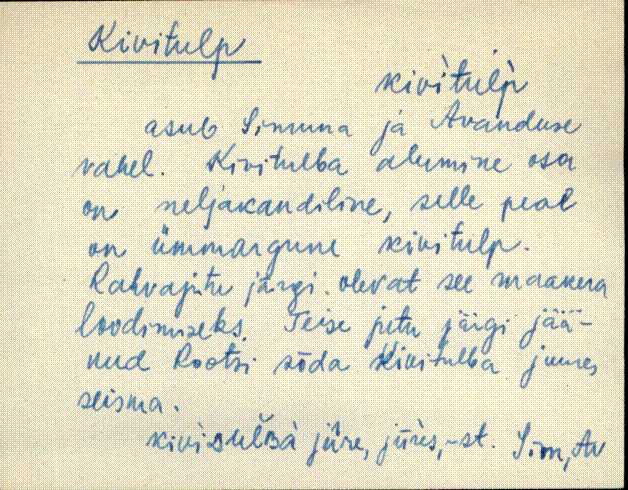 Kivitulp
kivi̇̀tulp̀
asub Simuna ja Avanduse
vahel. Kivitulba alumine osa
on neljakandiline, selle peal
on ümmargune kivitulp.
Rahvajutu järgi olevat see maakera
loodimiseks. Teise jutu järgi jää-
nud Rootsi sõda Kivitulba juures
seisma.
jūre, jūres, -st. Sim, Av